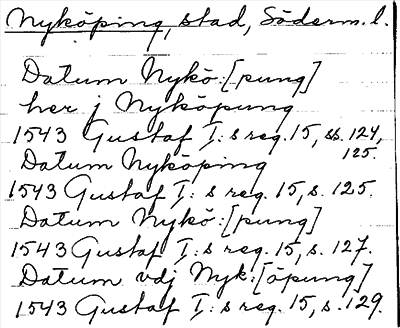 Nyköping, stad, Söderm. l.
Datum Nykö:[pung]
her j Nyköpung
1543 Gustaf I:s reg. 15, ss. 124, 125.
Datum Nyköping
1543 Gustaf I:s reg. 15, s. 125.
Datum Nykö:[pung]
1543 Gustaf I:s reg. 15, s. 127.
Datum vdj Nyk:[öpung]
1543 Gustaf I:s reg. 15, s. 129.